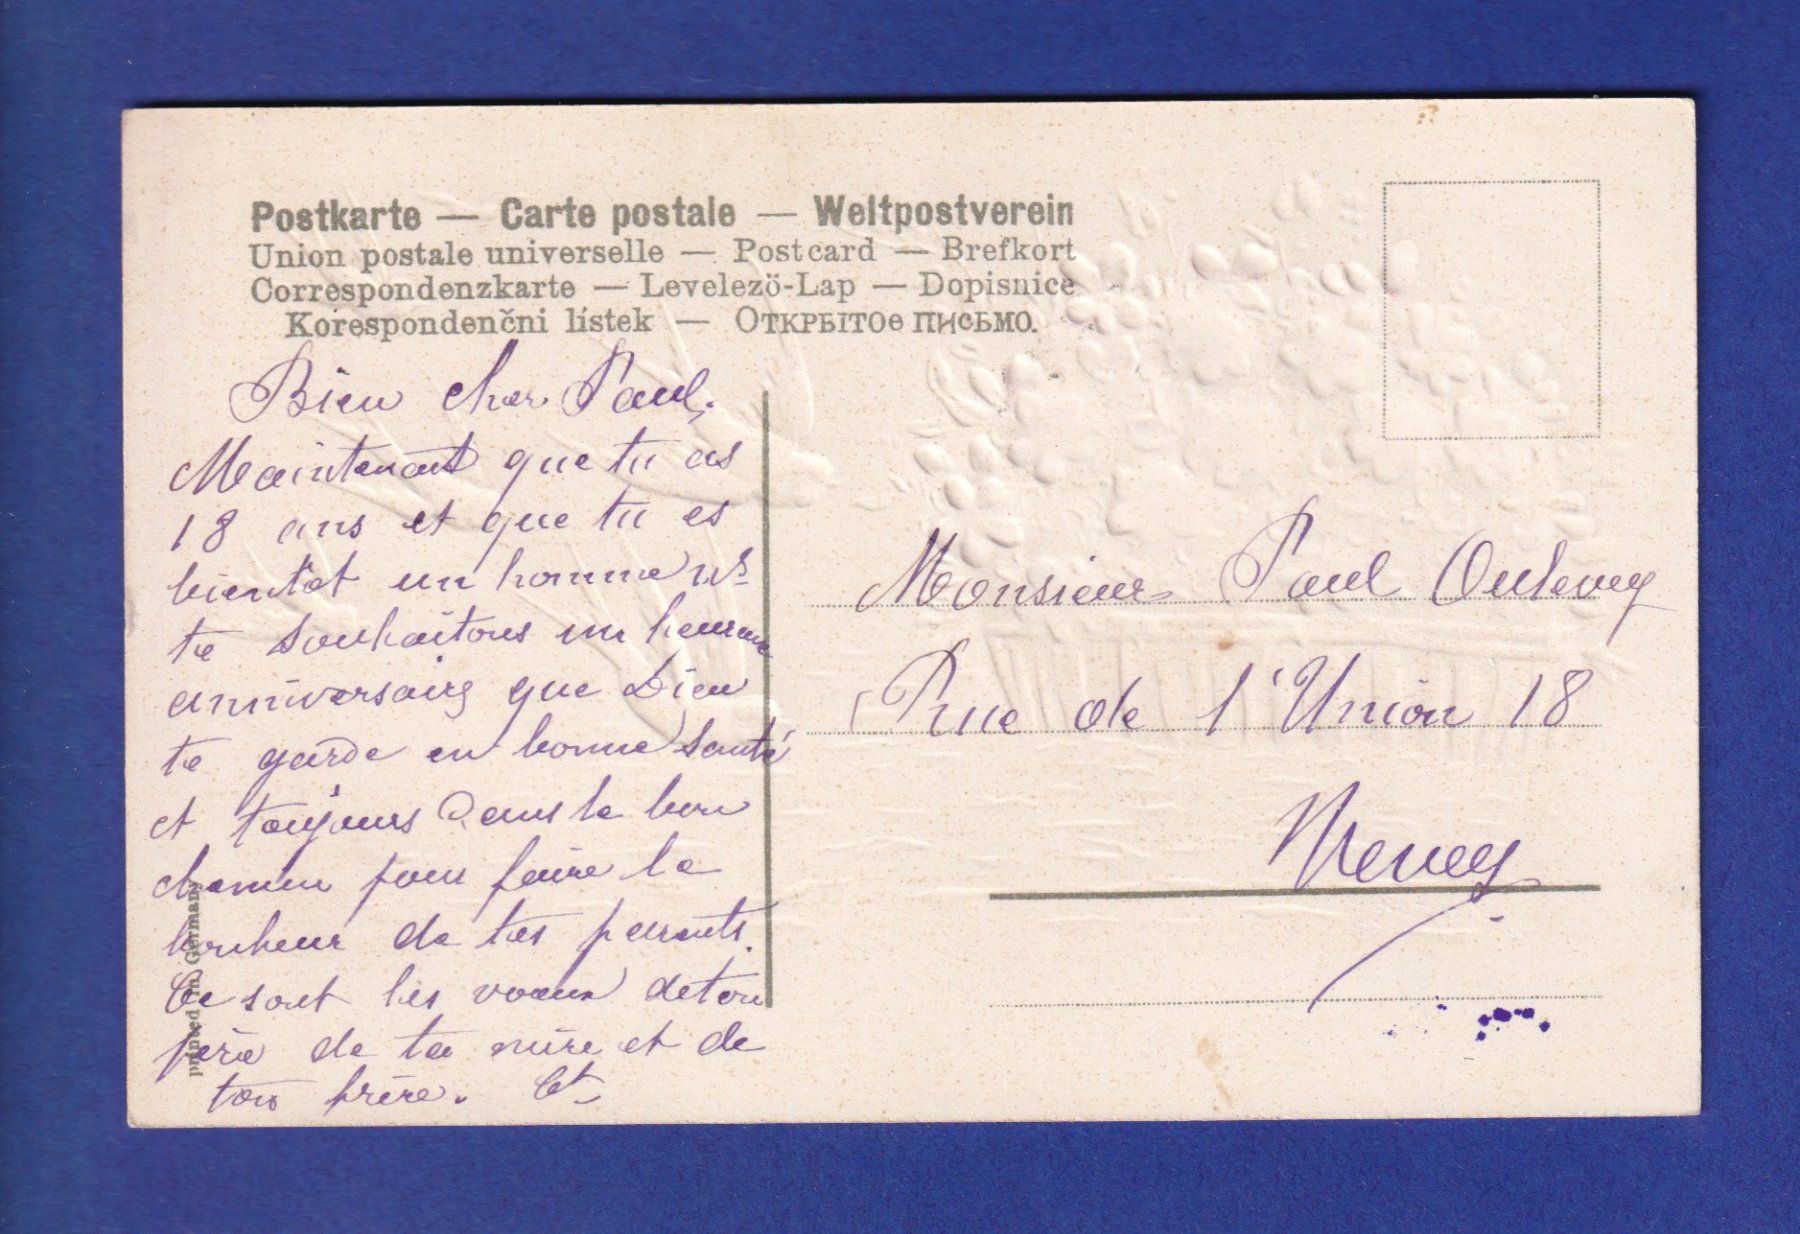 Postkarte — Carte postale — Weltpostverein
Union postale universelle — Postcard — Brefkort
Correspondenzkarte — Levelezö-Lap — Dopisnice
Korespondenčni lístek — ОТКРЫТОе ПИСЬМО.
Bien cher Paul.
Maintenant que tu as
18 ans et que tu es
bientôt un homme ns
te souhaitons un heureux
anniversaire que Dieu
te garde en bonne santé
et toujours dans le bon
chemin pour faire le
bonheur de tes parents.
Ce sont les voeux de ton
père de ta mère et de
ton frère.
printed in Germany
Monsieur Paul Oulevey
Rue de l'Union 18
Vevey